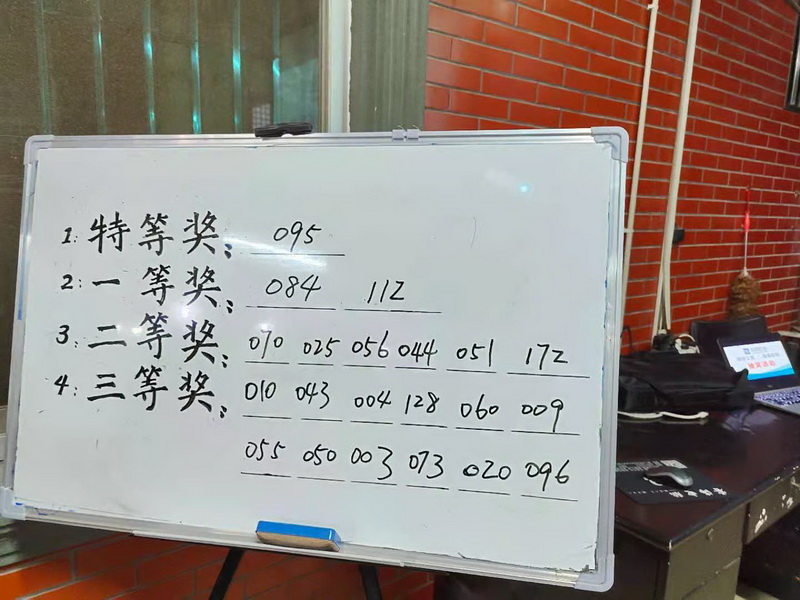 1: 特等奖: 095
2: 一等奖: 084 112
3: 二等奖: 070 025 056 044 051 172
4: 三等奖: 010 043 004 128 060 009
055 050 003 073 020 096